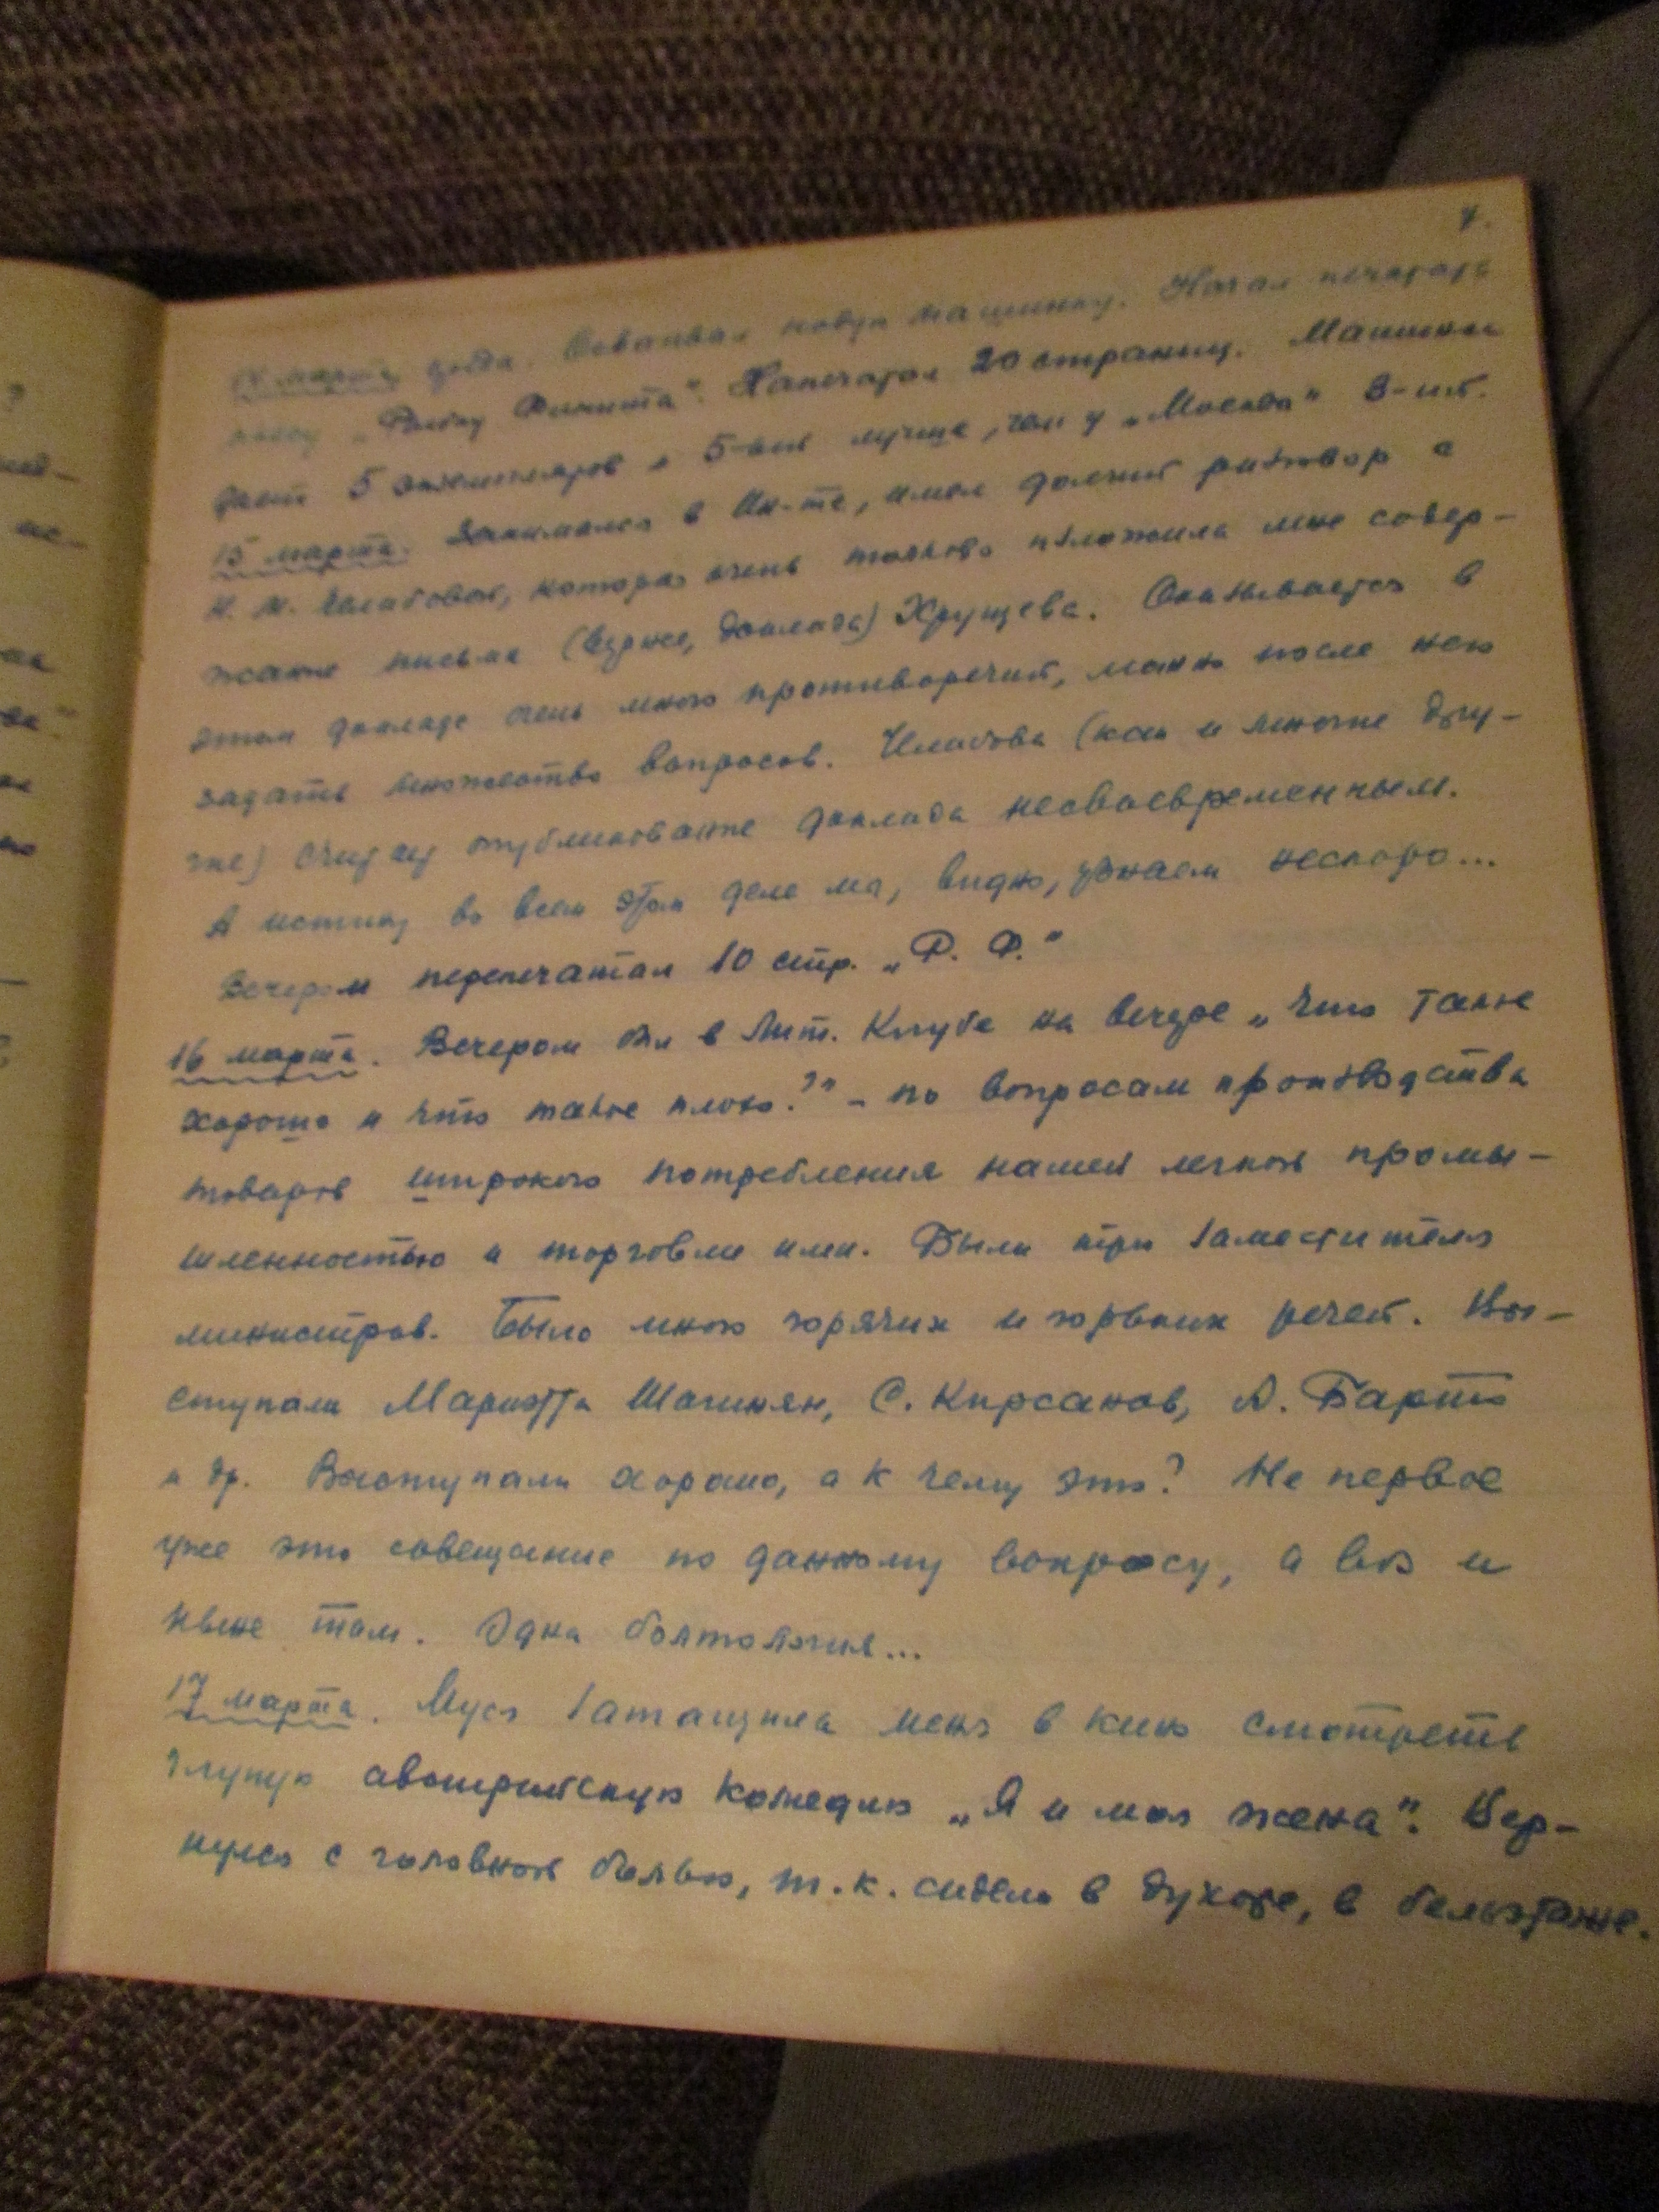 7.
14 марта, среда. Осваивал новую машинку. Начал печатать
пьесу „Ральфу Финита“. Напечатал 20 страниц. Машинка
дает 5 экземпляров и 5-ый лучше, чем у „Москва“ 3-ий.
15 марта. Занимался в Ин-те, имел долгий разговор с
которая очень толково изложила мне содер-
жание письма (вернее, доклада) Хрущева. Оказывается в
этом докладе очень много противоречий, можно после него
задать множество вопросов. (как и многие дру-
гие) опубликование доклада несвоевременным.
А истину во всем этом деле мы, видно, узнаем нескоро...
Вечером перепечатал 10 стр. „Р. Ф.“
16 марта. Вечером был в Лит. Клубе на вечере „Что такое
хорошо и что такое плохо?“ – по вопросам производства
товаров широкого потребления нашей легкой промы-
шленностью и торговли ими. Были три заместителя
министров. Было много горячих и горьких речей. Вы-
ступали Мариэтта Шагинян, С. Кирсанов, А. Барто
и др. Выступали хорошо, а к чему это? Не первое
уже это совещание по данному вопросу, а воз и
ныне там. Одна болтология...
17 марта. Муся затащила меня в кино смотреть
глупую австрийскую комедию „Я и моя жена“. Вер-
нулся с головной болью, т.к. сидели в духоте, в бельэтаже.